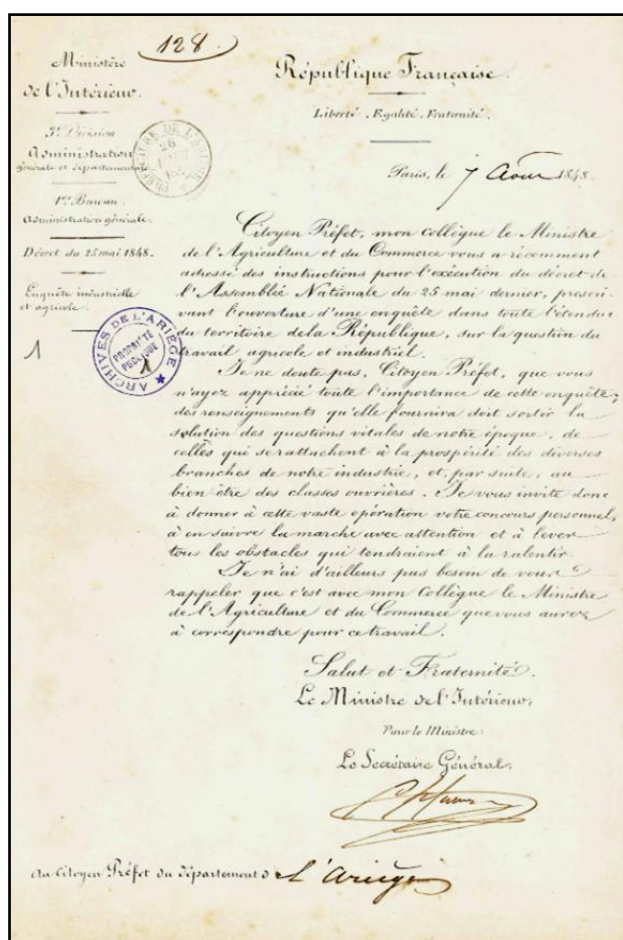 128.
Ministère
de l'Intérieur.
3e Division
Administration
générale et départementale
1er Bureau
Administration générale.
Décret du 25 mai 1848.
Enquête industrielle
et agricole.
1
PRÉFECTURE DE L'ARIÈGE
26
ARCHIVES DE L'ARIÈGE
PROPRIÉTÉ
PUBLIQUE
République Française.
Liberté, Egalité, Fraternité.
Paris, le 7 Août 1848.
Citoyen Préfet, mon collègue le Ministre
de l'Agriculture et du Commerce vous a récemment
adressé des instructions pour l'exécution du décret de
l'Assemblée Nationale du 25 mai dernier, prescri-
vant l'ouverture d'une enquête dans toute l'étendue
du territoire de la République, sur la question du
travail agricole et industriel.
Je ne doute pas, Citoyen Préfet, que vous
n'ayez apprécié toute l'importance de cette enquête;
des renseignements qu'elle fournira doit sortir la
solution des questions vitales de notre époque, de
celles qui se rattachent à la prospérité des diverses
branches de notre industrie, et, par suite, au
bien être des classes ouvrières. Je vous invite donc
à donner à cette vaste opération votre concours personnel,
à en suivre la marche avec attention et à lever
tous les obstacles qui tendraient à la ralentir.
Je n'ai d'ailleurs pas besoin de vous
rappeler que c'est avec mon Collègue le Ministre
de l'Agriculture et du Commerce que vous aurez
à correspondre pour ce travail.
Salut et Fraternité.
Le Ministre de l'Intérieur,
Pour le Ministre:
Le Secrétaire Général,
Au Citoyen Préfet du département de l'Ariège